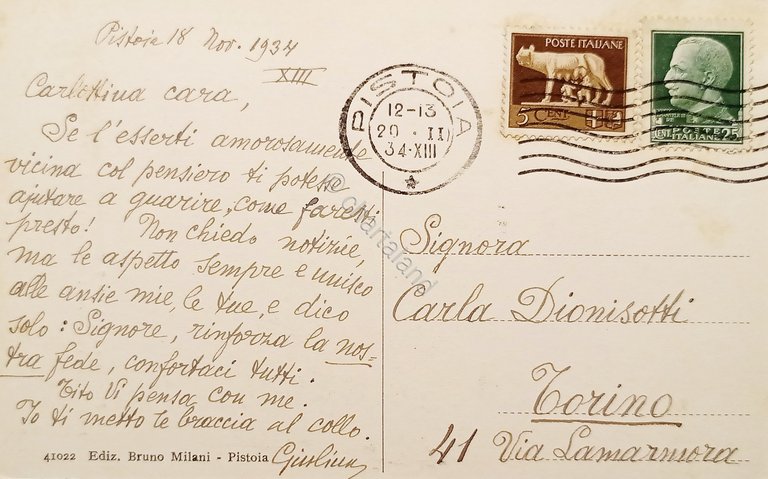 Pistoia 18 Nov. 1934
XIII
Carlottina cara,
Se l'esserti amorosamente
vicina col pensiero ti potesse
ajutare a guarire, come faresti
presto! Non chiedo notizie,
ma le aspetto sempre e unisco
alle ansie mie, le tue, e dico
solo: Signore, rinforza la nos-
tra fede, confortaci tutti.
Tito Vi pensa con me.
Io ti metto le braccia al collo.
Giuliana
41022 Ediz. Bruno Milani - Pistoia
PISTOIA
12-13
20 · II
34·XIII
POSTE ITALIANE
5 CENT
POSTE
CENT. ITALIANE 25
Signora
Carla Dionisotti
Torino
41 Via Lamarmora
© cartaland